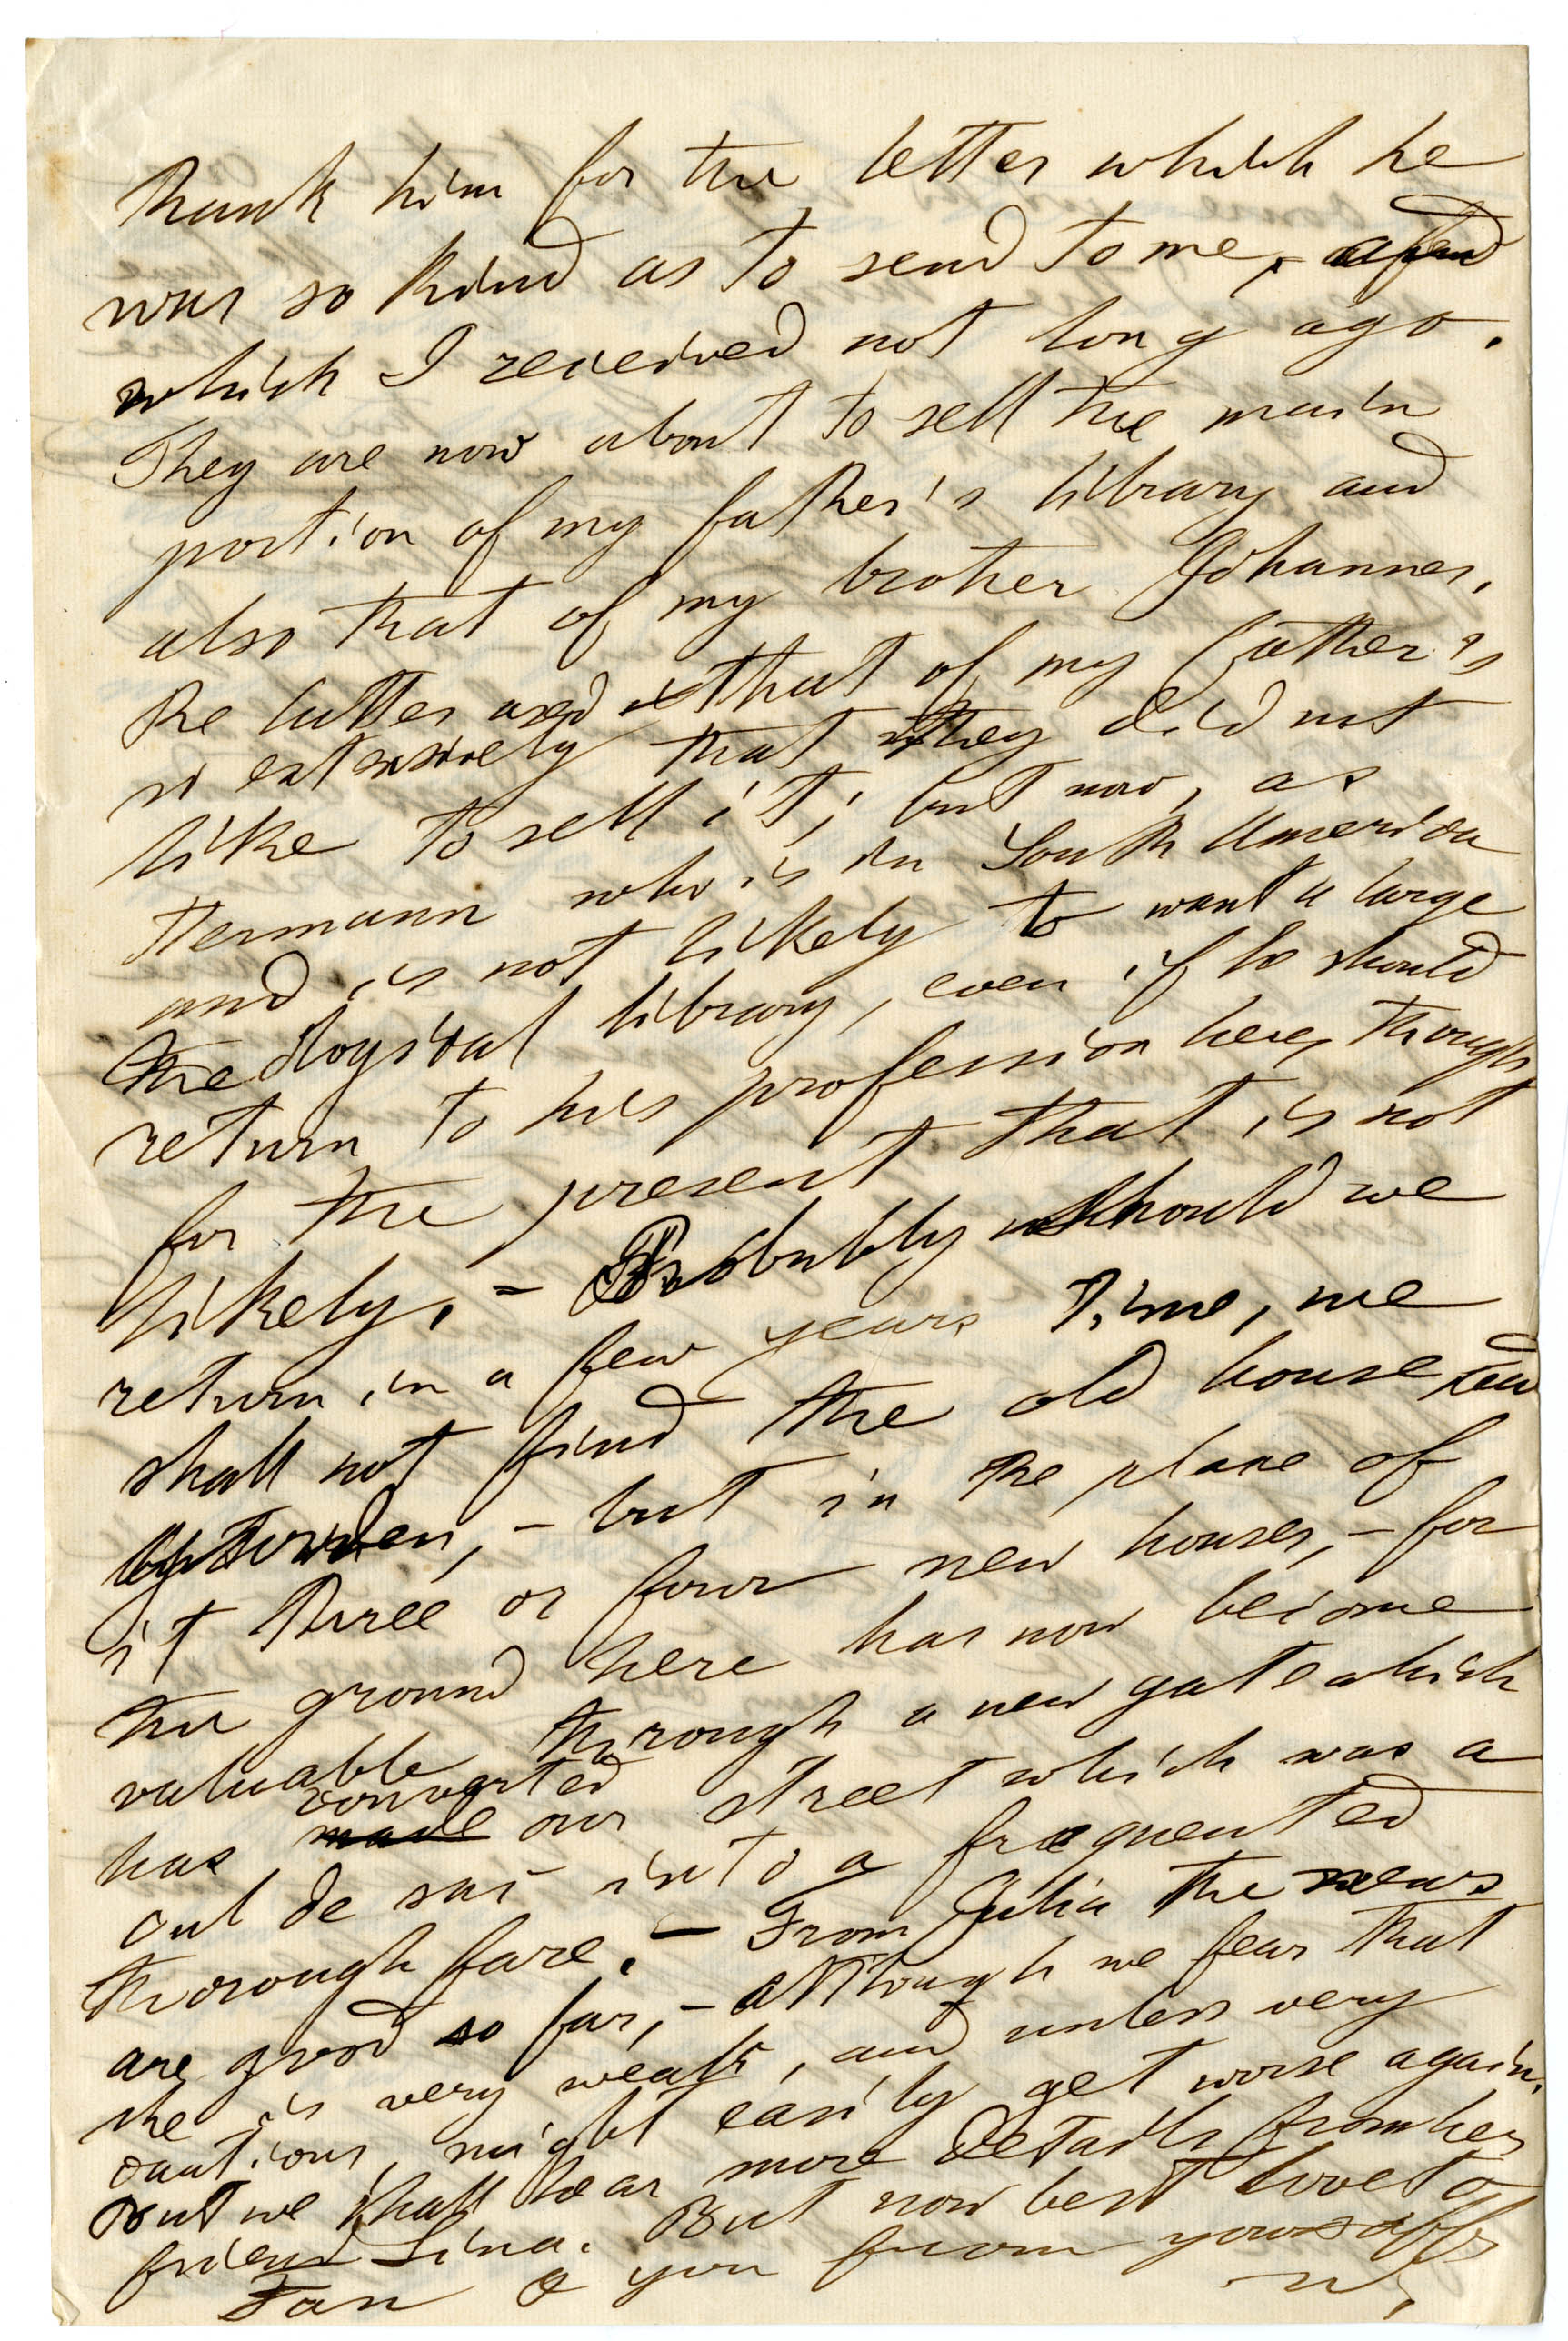 thank him for the letter which he
was so kind as to send to me, and
which I received not long ago.
They are now about to sell the main
portion of my father's library and
also that of my brother Johannes.
the latter used that of my father's
so extensively that they did not
like to sell it; but now, as
Hermann who is in South America
and is not likely to want a large
theological library, even if he should
return to his profession here, though
for the present that is not
likely. - Probably should we
return in a few years time, we
shall not find the old house
- but in the place of
it three or four new houses, - for
the ground here has now become
valuable through a new gate which
has made converted our street which was a
cul de sac into a frequented
thoroughfare. - From Julia the news
are good so far, - although we fear that
she is very weak, and unless very
cautious, might easily get worse again,
But we shall hear more details from her
friend Lina. But now best love to
Jan & you from yours affly